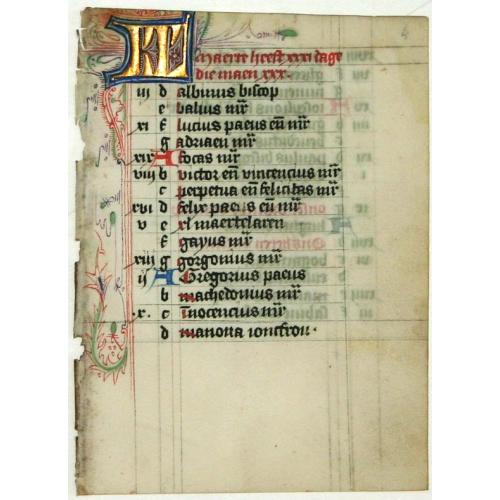 KL Maerte heeft xxxi dage
die maen xxx.
iii d albinus biscop
e balius mr
xi f lucius paeus en mr
g adriaen mr
xix A focas mr
viii b victor en vincencius mr
c perpetua en felicitas mr
xvi d felix paeus en mr
v e xl maertelaren
f gayus mr
xiii g gorgonius mr
ii A Gregorius paeus
b machedonius mr
x. c innocencius mr
d